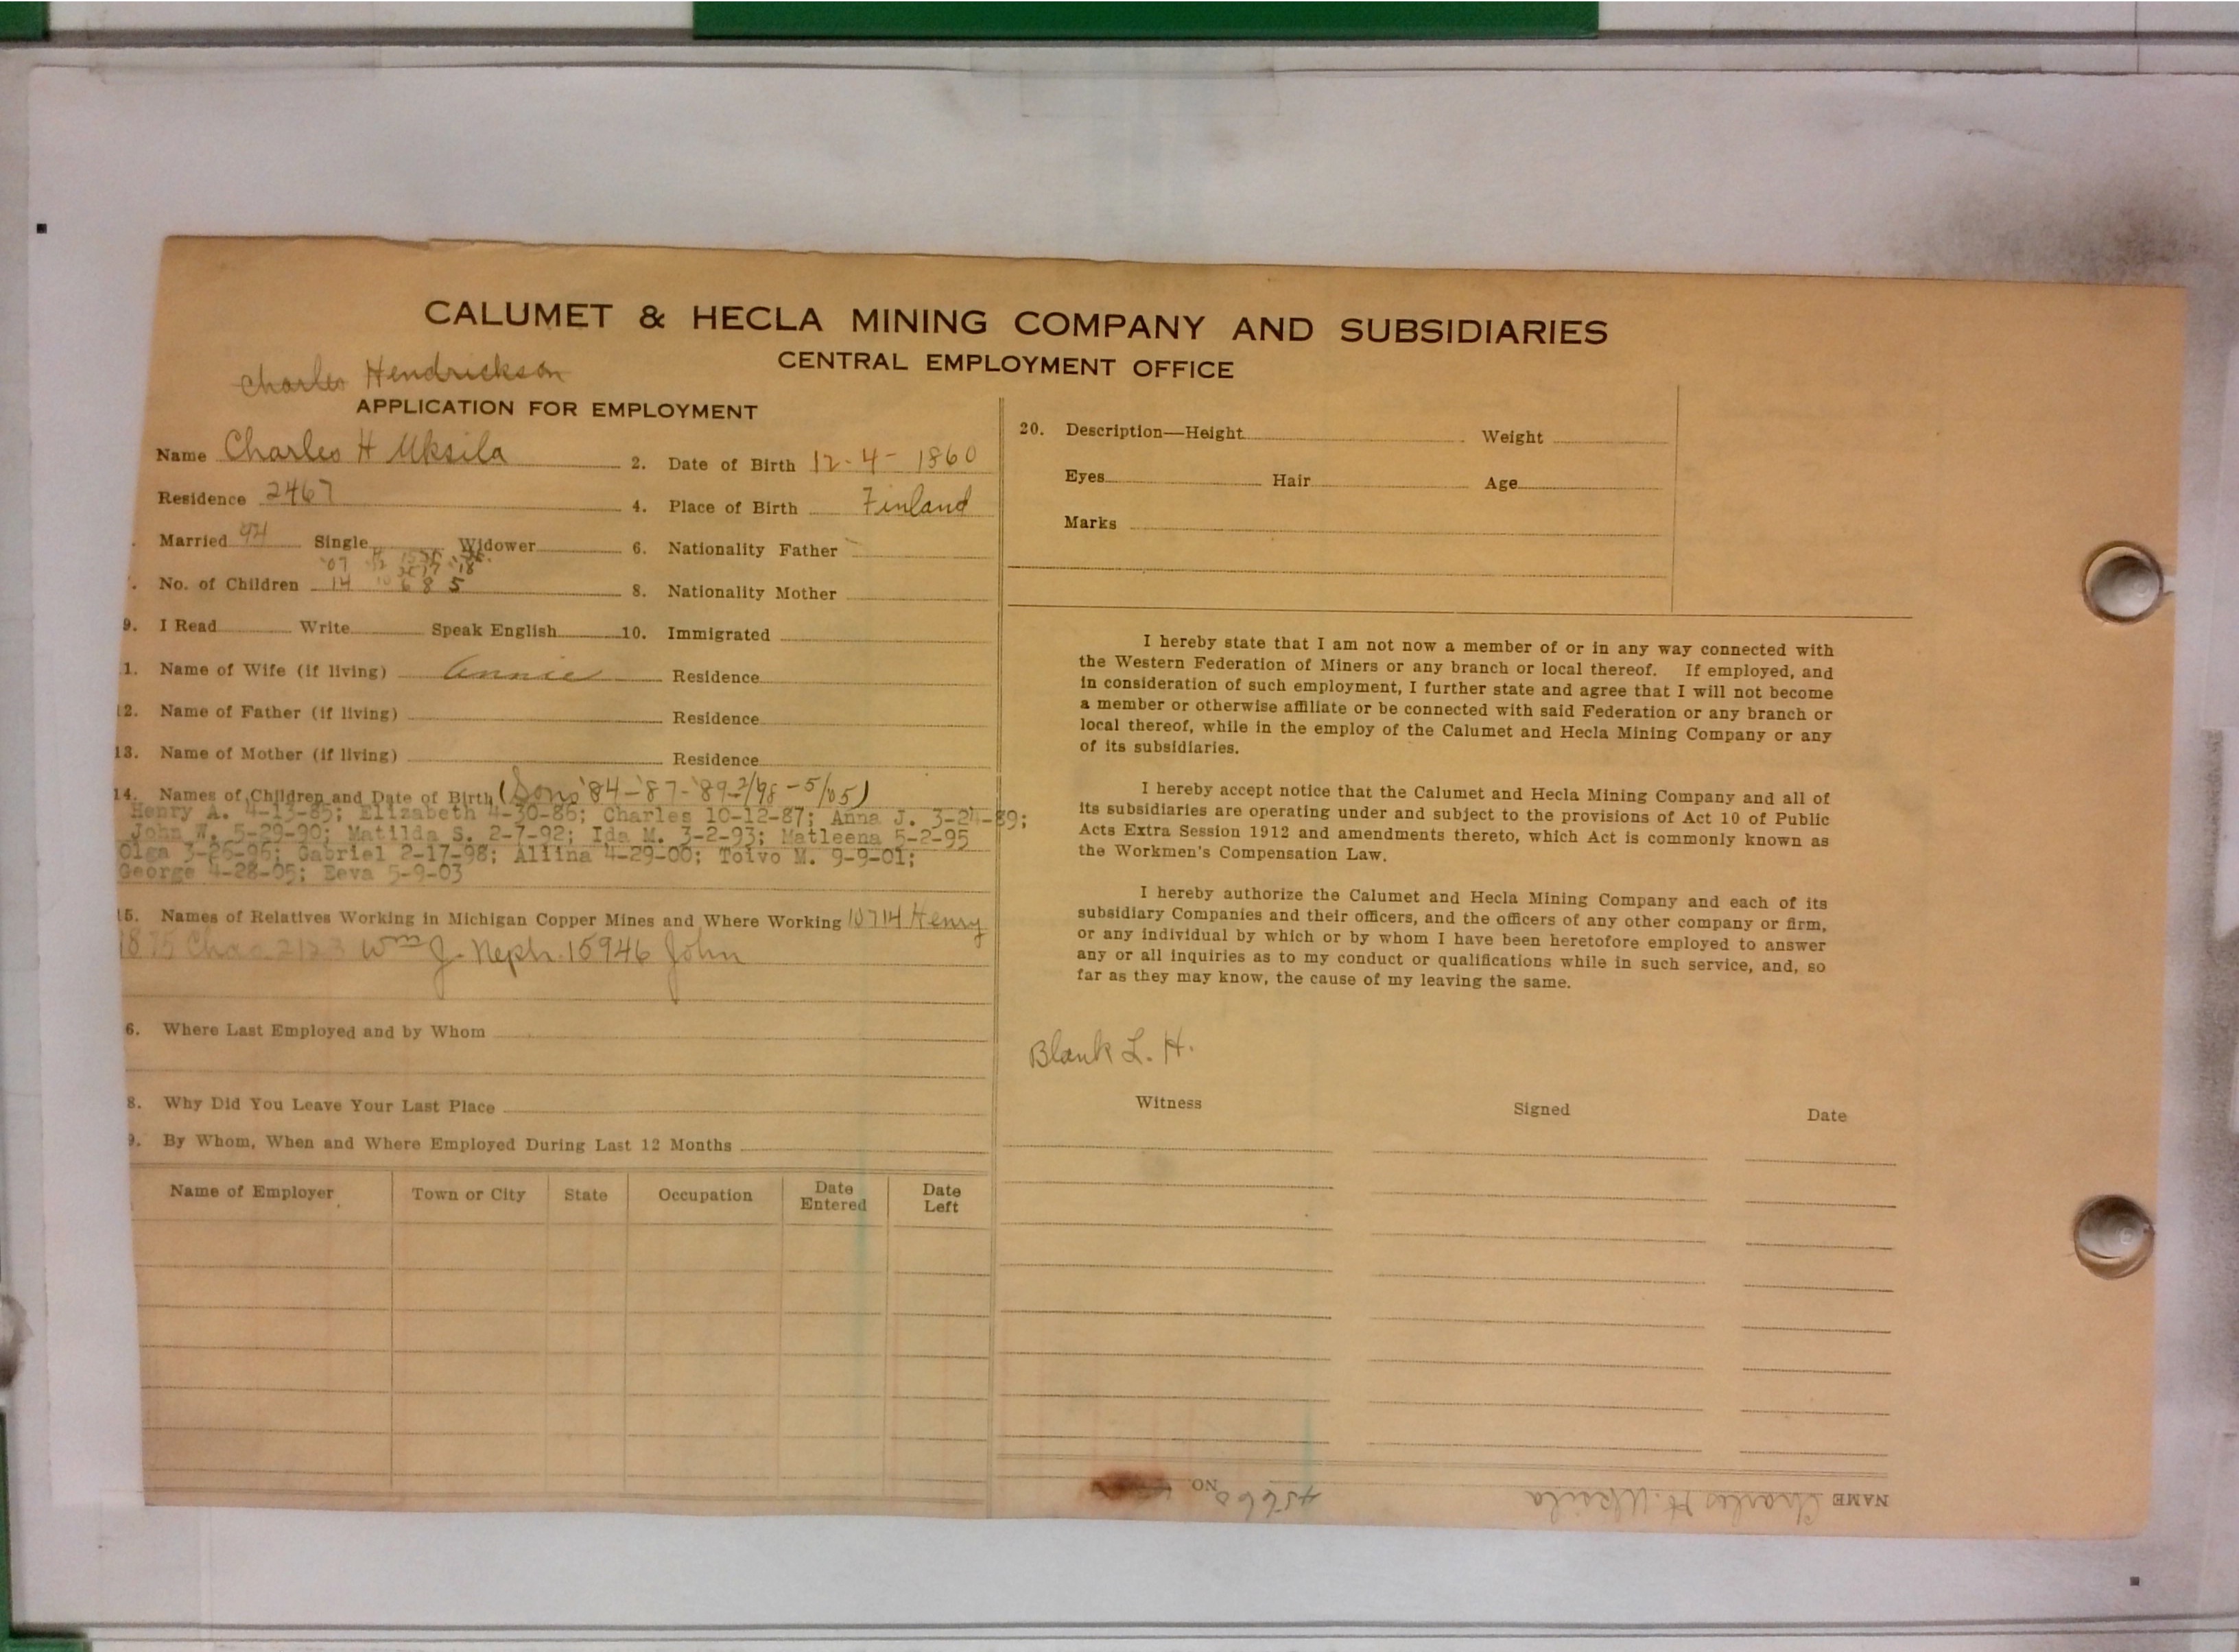 CALUMET & HECLA MINING COMPANY AND SUBSIDIARIES
CENTRAL EMPLOYMENT OFFICE
Charles Hendrickson
APPLICATION FOR EMPLOYMENT
Name Charles H Uksila 2. Date of Birth 12-4-1860
Residence 2467 4. Place of Birth Finland
Married Single Widower 6. Nationality Father
'07 '17 '18
No. of Children 14 10 6 8 5 8. Nationality Mother
9. I Read Write Speak English 10. Immigrated
1. Name of Wife (if living) Annie Residence
12. Name of Father (if living) Residence
13. Name of Mother (if living) Residence
14. Names of Children and Date of Birth (Sons '84-'87-'89-2/98-5/05)
Henry A. 4-13-85; Elizabeth 4-30-86; Charles 10-12-87; Anna J. 3-24-89;
John W. 5-29-90; Matilda S. 2-7-92; Ida M. 3-2-93; Matleena 5-2-95
Olga 3-26-96; Gabriel 2-17-98; Aliina 4-29-00; Toivo M. 9-9-01;
George 4-28-05; Eeva 5-9-03
15. Names of Relatives Working in Michigan Copper Mines and Where Working 10714 Henry
1875 Chas 2123 Wm J. Neph. 15946 John
6. Where Last Employed and by Whom
8. Why Did You Leave Your Last Place
9. By Whom, When and Where Employed During Last 12 Months
Name of Employer Town or City State Occupation Date Entered Date Left
20. Description—Height Weight
Eyes Hair Age
Marks
I hereby state that I am not now a member of or in any way connected with
the Western Federation of Miners or any branch or local thereof. If employed, and
in consideration of such employment, I further state and agree that I will not become
a member or otherwise affiliate or be connected with said Federation or any branch or
local thereof, while in the employ of the Calumet and Hecla Mining Company or any
of its subsidiaries.
I hereby accept notice that the Calumet and Hecla Mining Company and all of
its subsidiaries are operating under and subject to the provisions of Act 10 of Public
Acts Extra Session 1912 and amendments thereto, which Act is commonly known as
the Workmen's Compensation Law.
I hereby authorize the Calumet and Hecla Mining Company and each of its
subsidiary Companies and their officers, and the officers of any other company or firm,
or any individual by which or by whom I have been heretofore employed to answer
any or all inquiries as to my conduct or qualifications while in such service, and, so
far as they may know, the cause of my leaving the same.
Blank L. H.
Witness Signed Date
NAME Charles H. Uksila NO.